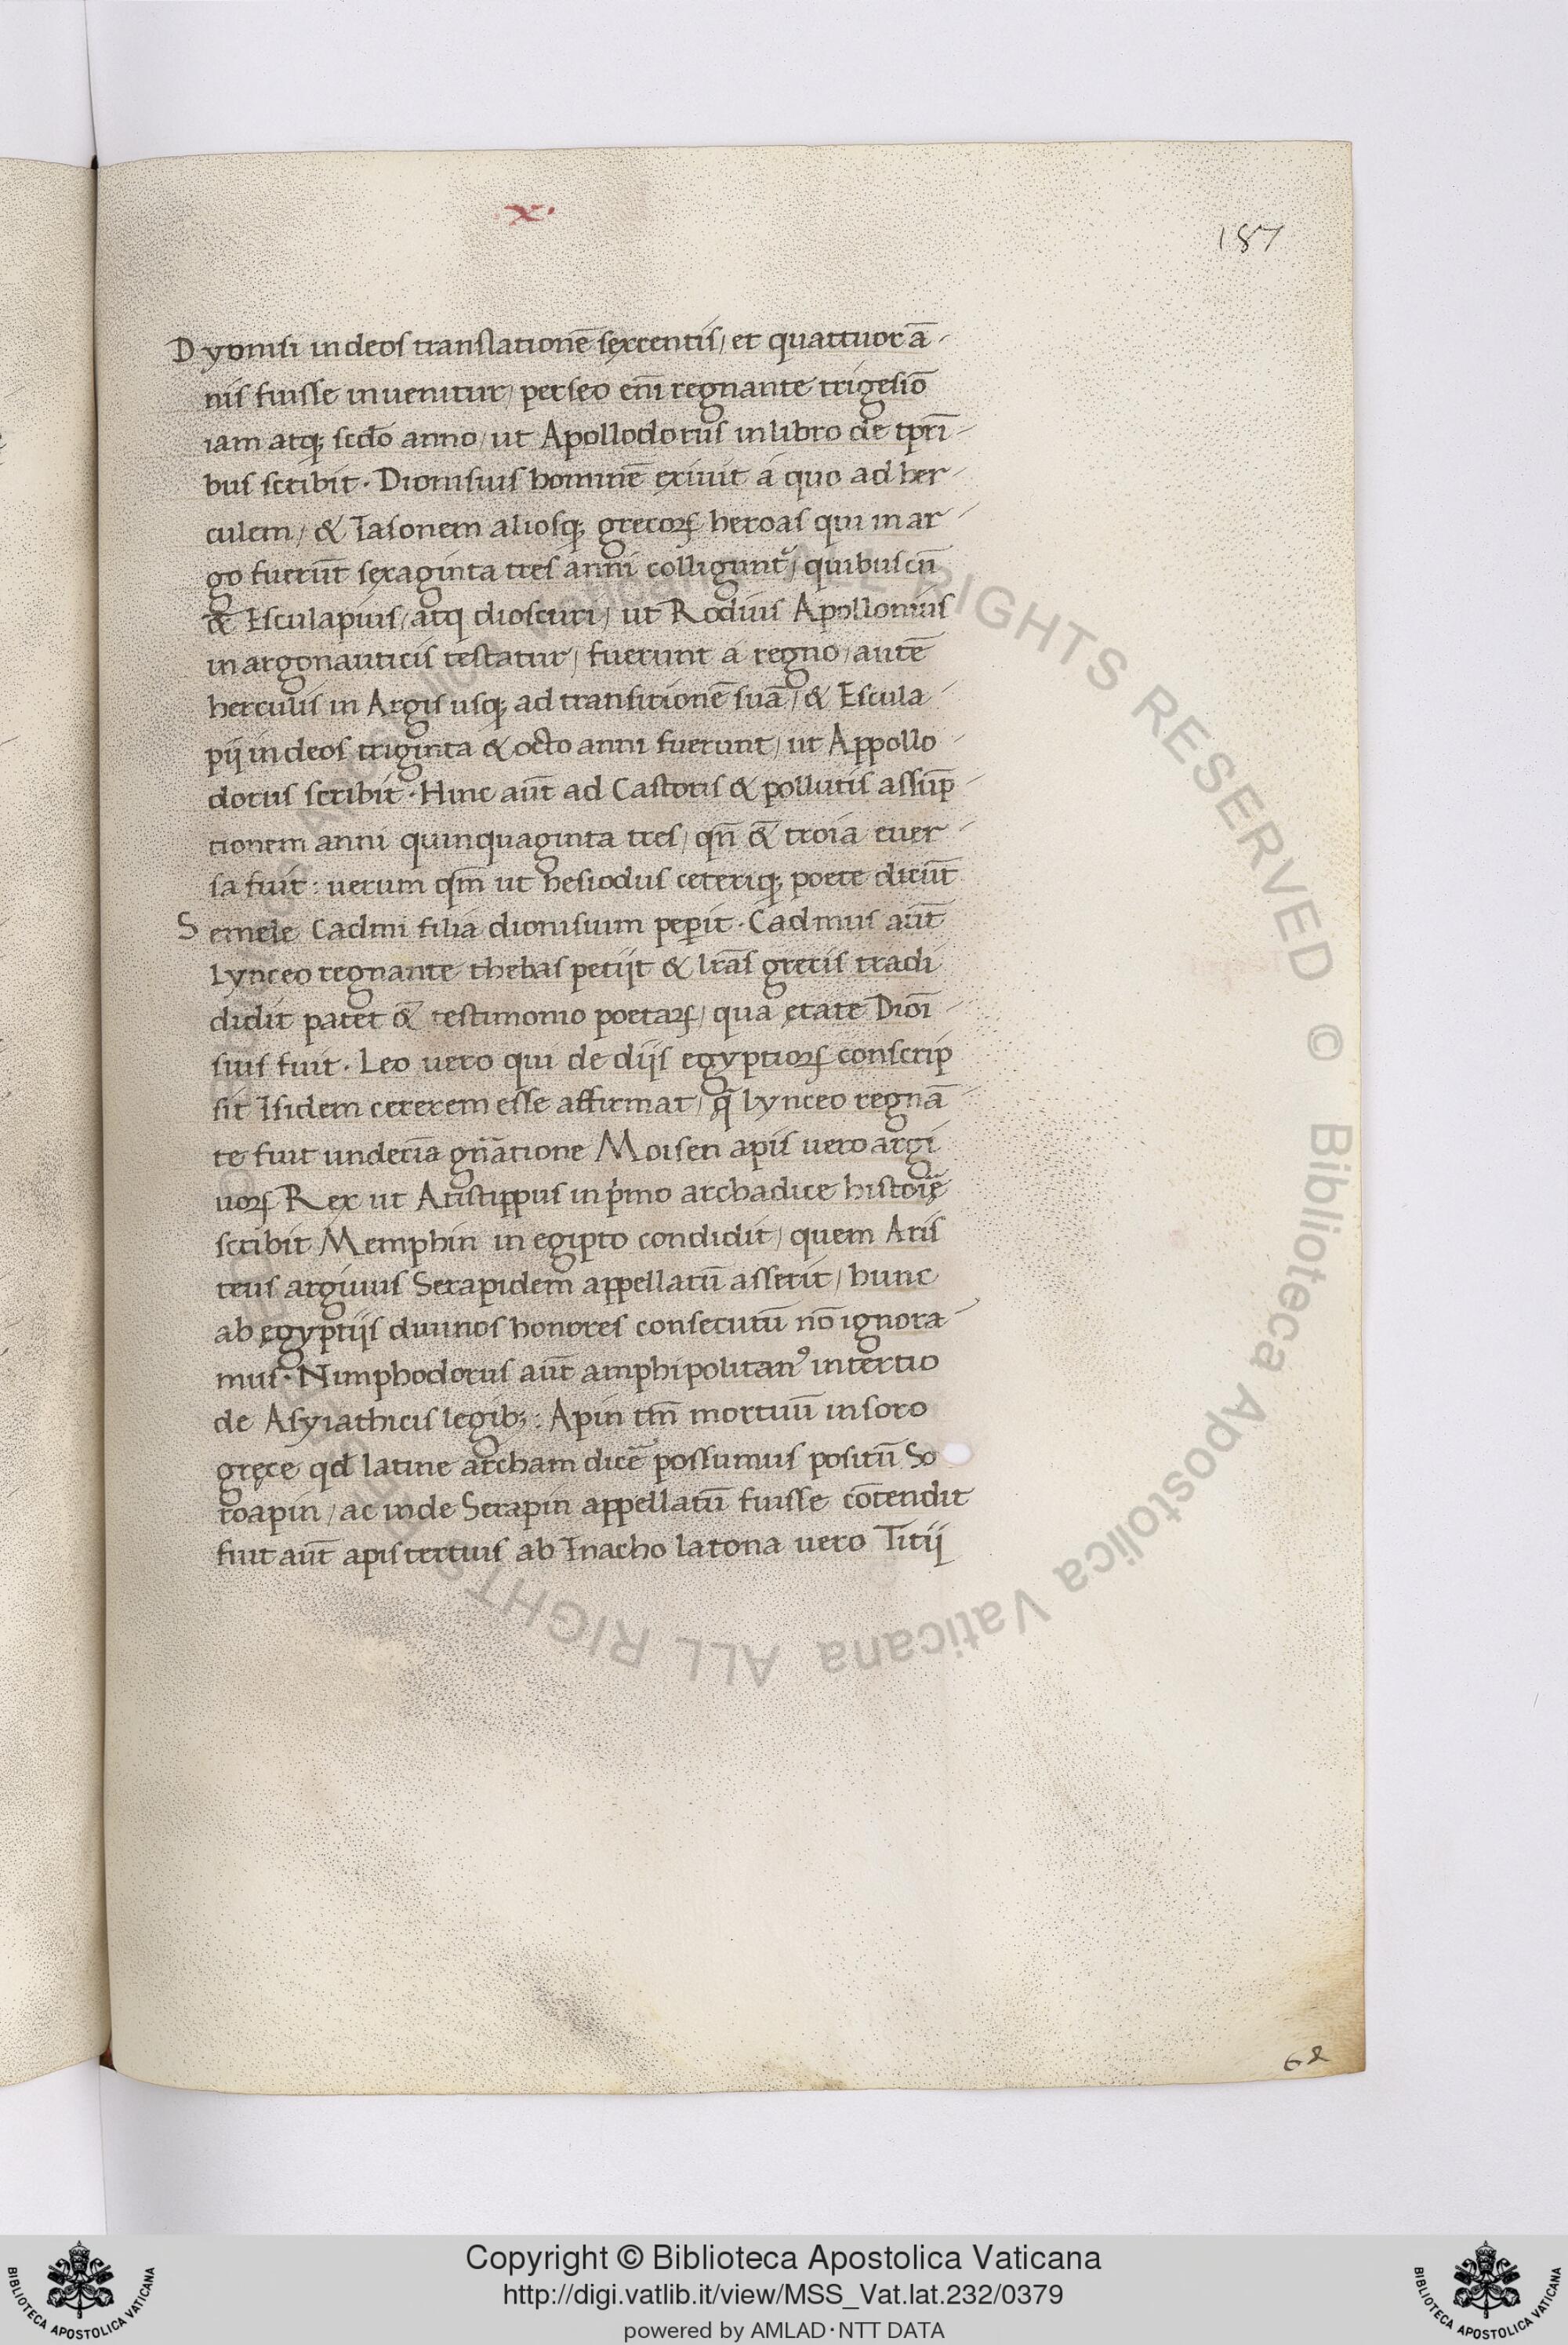 x.
187
Dyonisi in deos translationē sexcentis / et quattuor ā-
nis fuisse inuenitur / perseo eni᷑ regnante trigesio᷑
iam atq; scďo anno / ut Apollodorus in libro de tpri᷑-
bus scribit · Dionisius hominē exiuit a quo ad her-
culem / & Iasonem aliosq; grecoꝝ heroas qui in ar-
go fuerūt sexaginta tres anni colligunt᷑ / quibus cū
& Esculapius / atq dioscuri / ut Rodius Apollonius
in argonauticis testatur / fuerunt a regno / autē
herculis in Argis usq; ad transitionē suā / & Escula-
pij in deos triginta & octo anni fuerunt / ut Appollo-
dorus scribit · Hinc aūt ad Castoris & pollucis assūp-
tionem anni quinquaginta tres / qn̄ &̄ troia euer-
sa fuit : uerum qm̄ ut hesiodus ceteriq; poete dicūt
Semele Cadmi filia dionisium peꝑit · Cadmus aūt
Lynceo regnante thebas petijt & lr̄as grecis tradi-
didit patet &̄ testimonio poetaꝝ / qua ętate Dioi᷑-
sius fuit · Leo uero qui de dijs egyptioꝝ conscrip
sit Isidem cererem esse affirmat / q̄ Lynceo regnā-
te fuit undecīa gn̄atione Moisen apis uero argi-
uoꝝ Rex ut Aristippus in pͥmo archadice histoīę
scribit Memphin in egipto condidit / quem Aris
teus argiuus Serapidem appellatū asserit / hunc
ab ęgyptijs diuinos honores consecutū nō ignora-
mus · Nimphodorus aūt amphipolitanꝰ in tertio
de Asyiathicis legib; : Apin tm̄ mortuū in soro
gręce qď latine archam dicē possumus positū So
roapin / ac inde Serapin appellatū fuisse cōtendit
fuit aūt apis tertius ab Inacho latona uero Titij
62
Copyright © Biblioteca Apostolica Vaticana
http://digi.vatlib.it/view/MSS_Vat.lat.232/0379
powered by AMLAD·NTT DATA
BIBLIOTECA APOSTOLICA VATICANA
BIBLIOTECA APOSTOLICA VATICANA